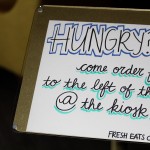 HUNGRY
come order
to the left of th
@ the kiosk
FRESH EATS